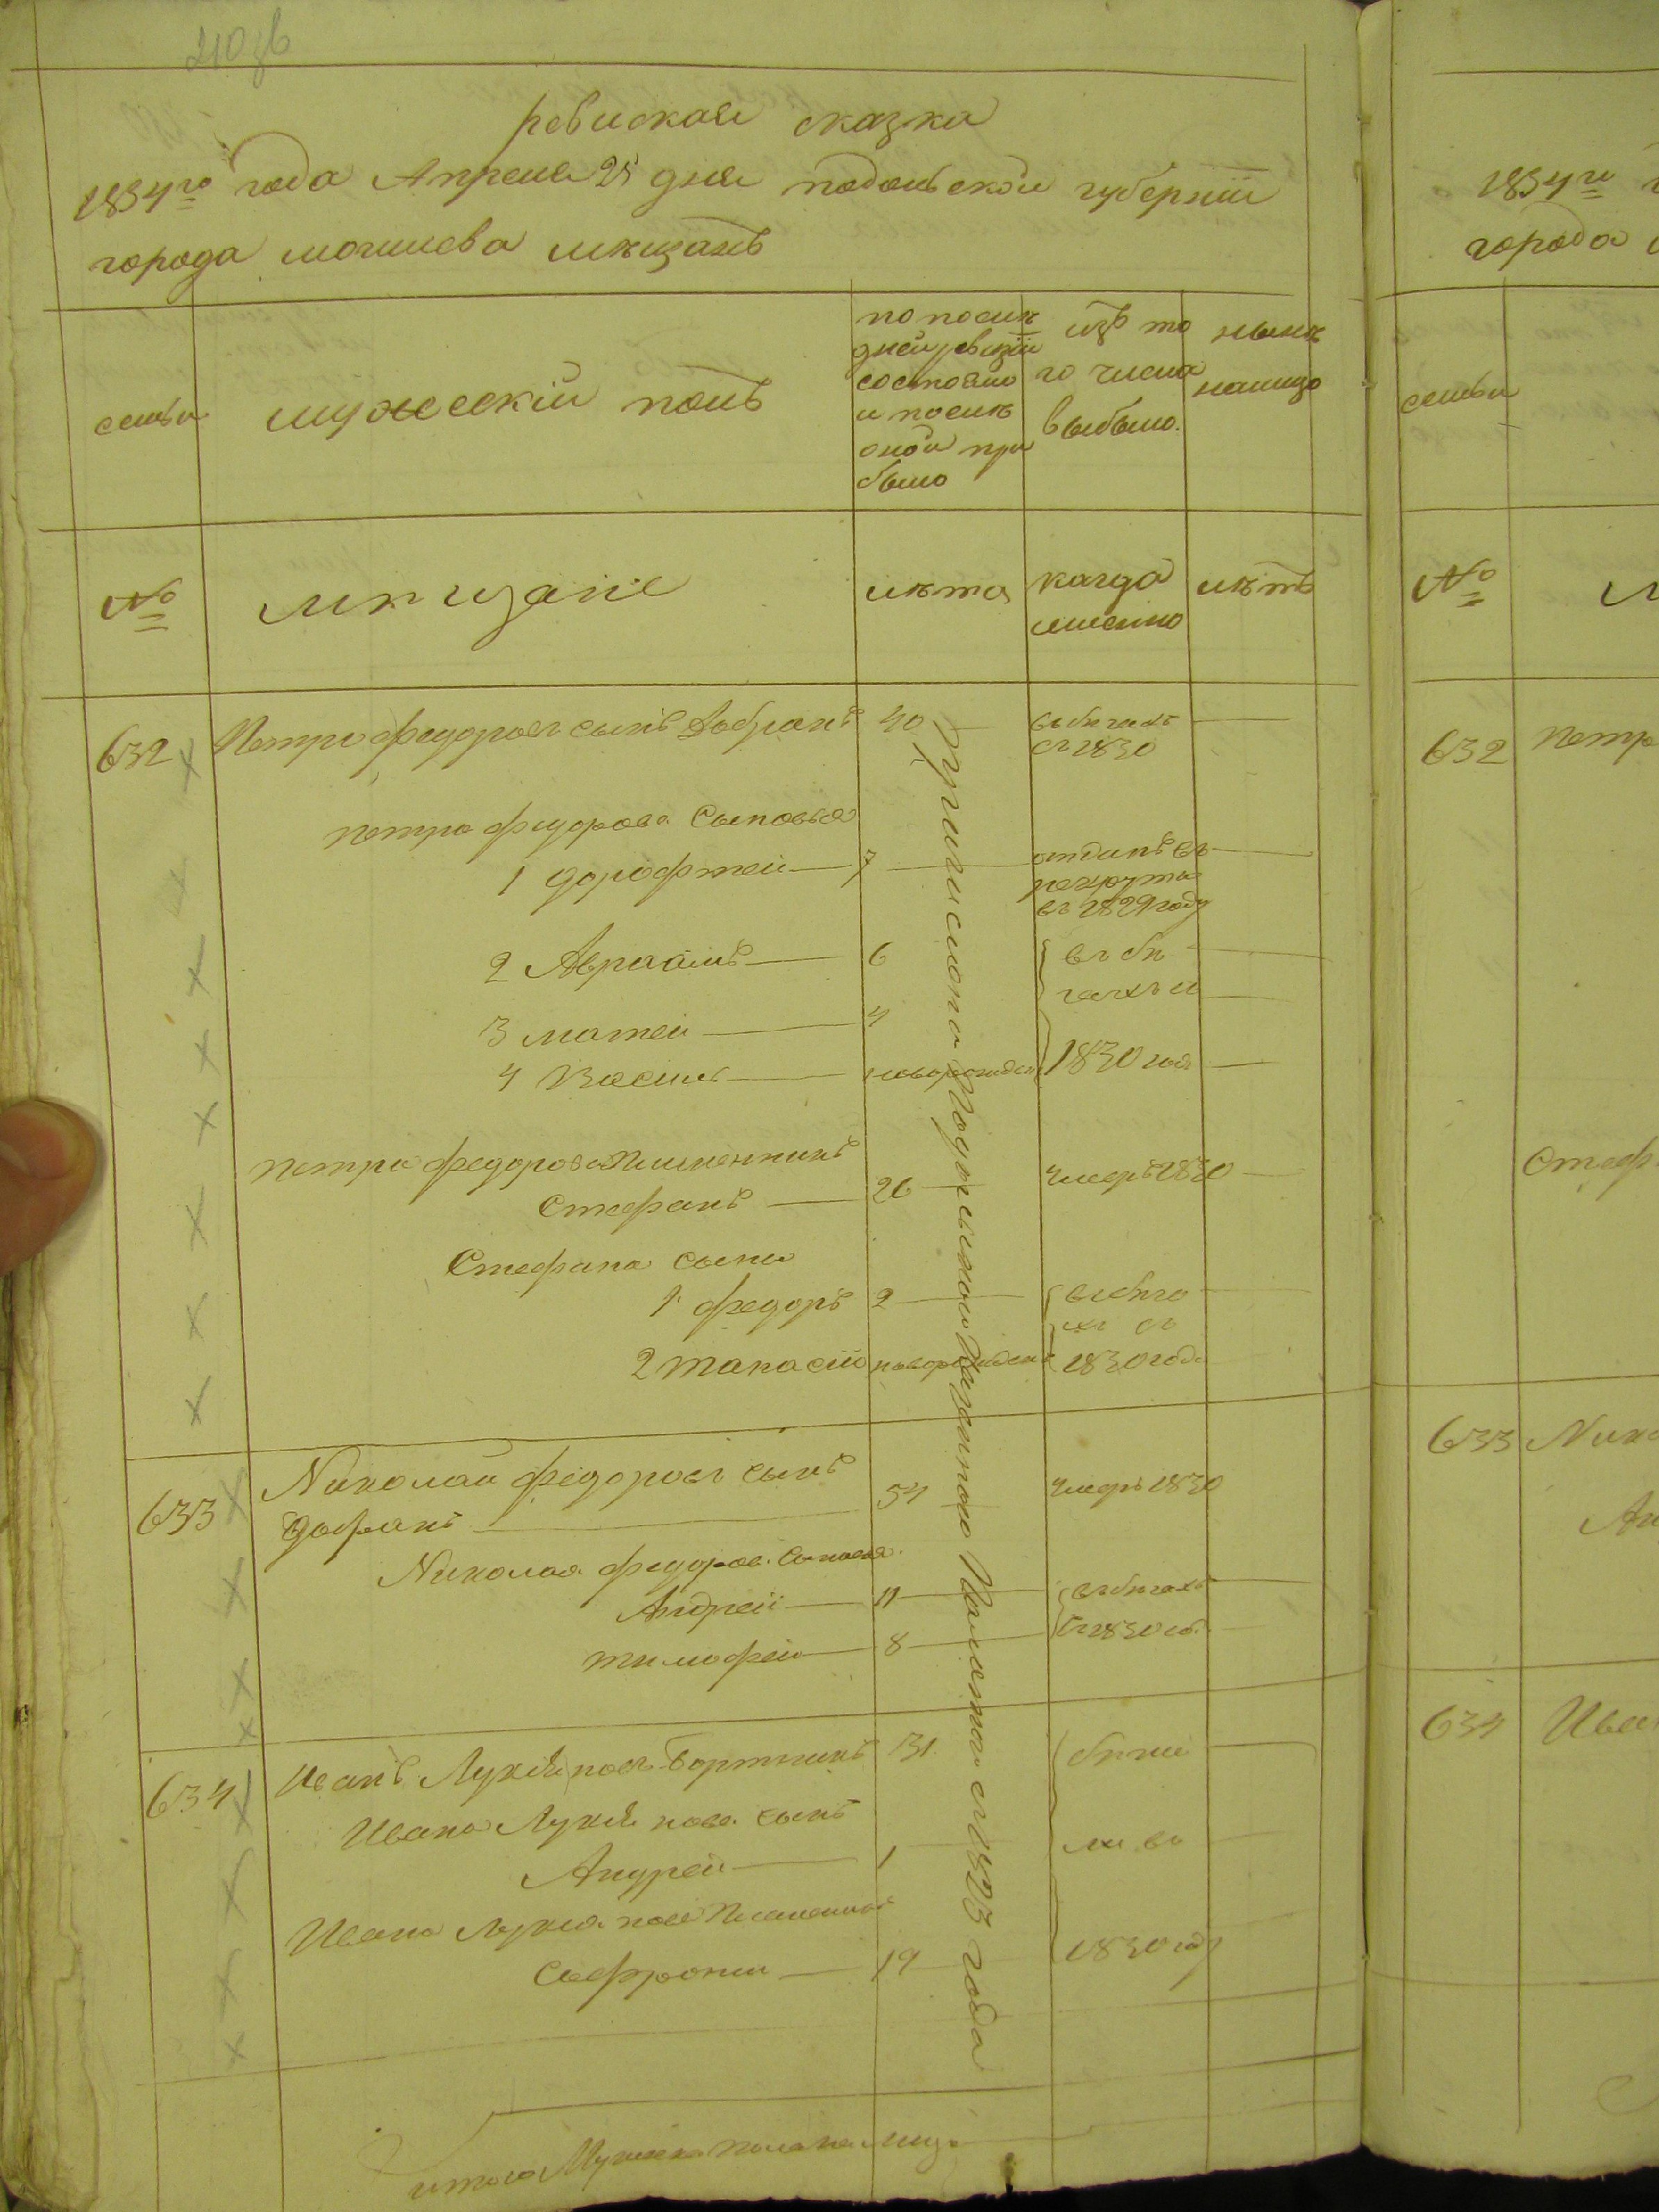 210 зв
ревиская сказка
1834го года Апреля 25 дня подольской губернїи
города могилева мѣщанъ
семьи
мужескїй полъ
по послѣ
дней ревизїи
состояло
и послѣ
оной при
было
изъ то
го числа
выбыло.
нынѣ
налицо
№
мѣщане
лѣта
когда
именно
лѣтъ
632
Петро федоровъ сынъ Добранъ 40
въ бѣгахъ
съ 1830
петра федорова Сыновья
1 дорофтей 7
отданъ въ
рекруты
въ 1829 году
2 Авраамъ 6
въ бѣ
гахъ съ
3 матей 4
4 Василь новорожден
1830 года
петра федорова племенникъ
Стефанъ 26
умеръ 1830
Стефана сыны
1 федоръ 2
въ бѣга
хъ съ
2 танасїй новорожденъ
1830 года
633
Николай федоровъ сынъ
Добранъ 54
умеръ 1830
Николая федоров. Сыновья
Андрей 11
въ бѣгахъ
тимофей 8
съ 1830 год.
634
Иванъ Лукїяновъ Бортникъ 31
бѣжа
Ивана Лукїянова сынъ
Андрей 1
ли въ
Ивана Лукиянова Племенник
Сафрони 19
1830 году
причислены Подольской Казенною Палатою съ 1823 года
итого Мужеска пола на лицо
1834го
города
семьи
№
632 петр
Стеф
633 Нико
Ан
634 Иван